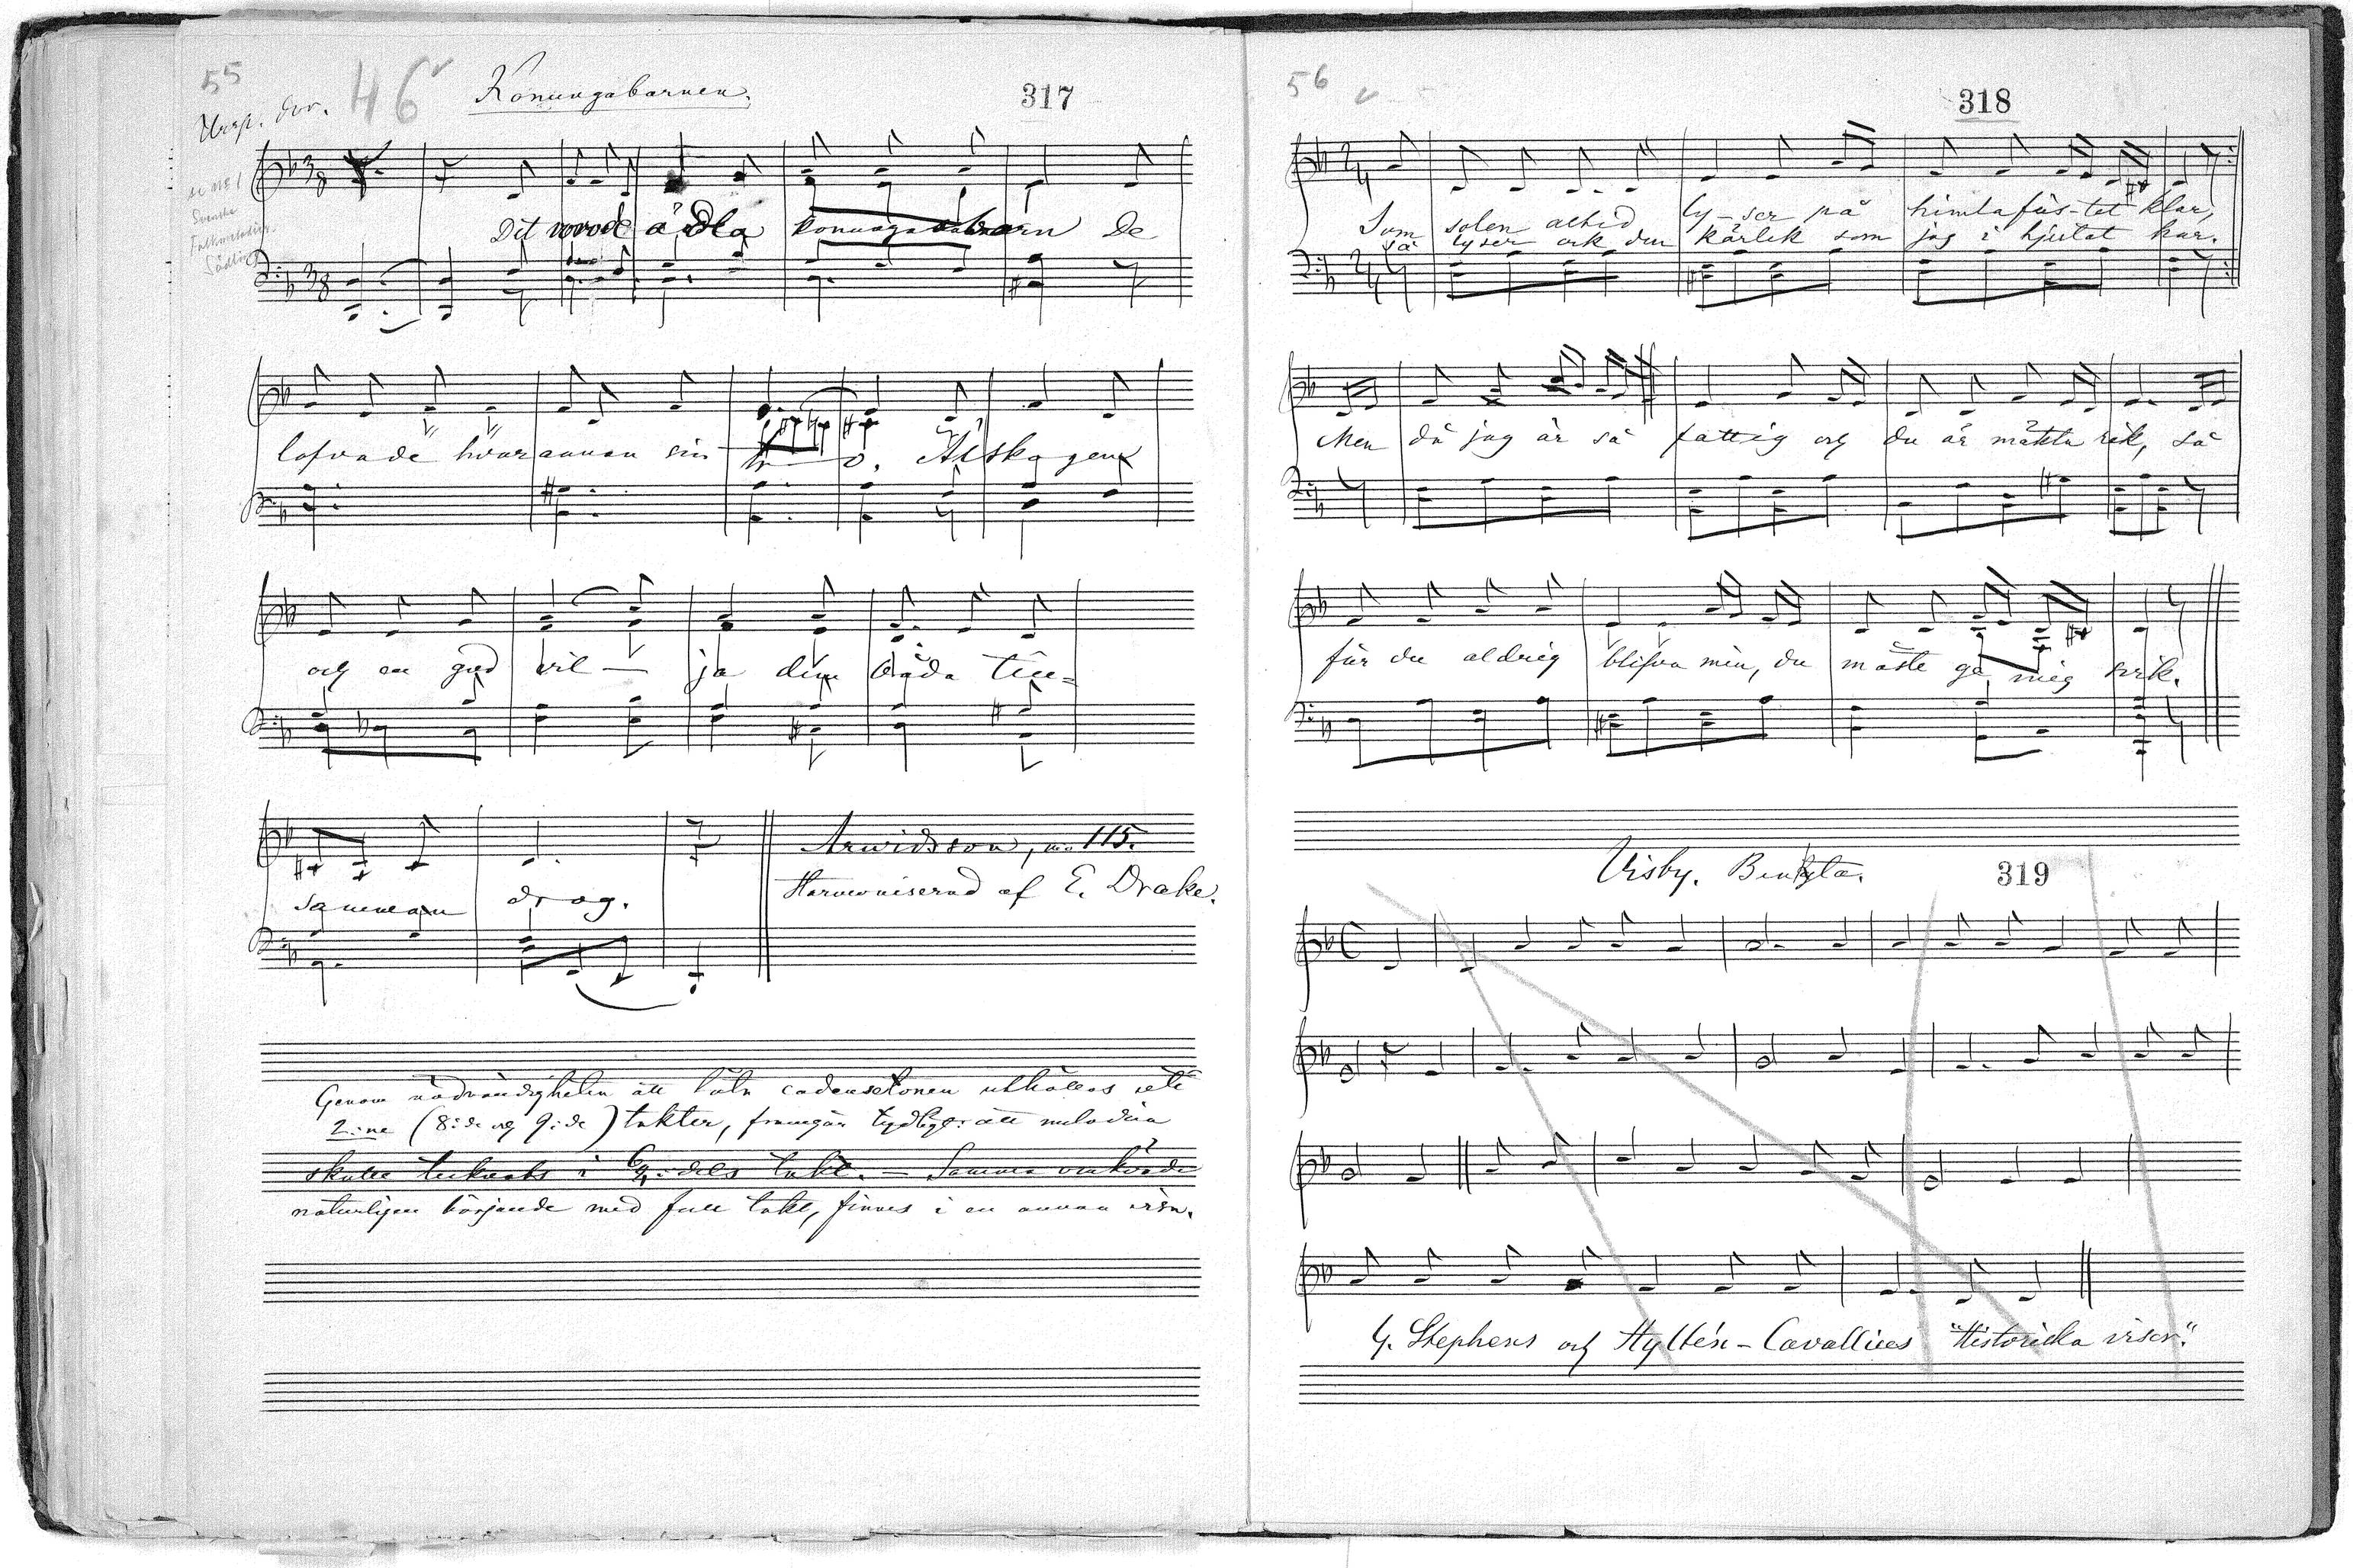 55
Ursp. dor.
46
Konungabarnen.
317
se No 1
Svenska
Folkmelodier
Det vorode ädla konungabarn De
lofvade hvarannan sin tro. Älskogen
och en god vil — ja dem båda till=
samman drog.
Arwidsson, no 115.
Harmoniserad af E. Drake.
Genom nödvändigheten att låta cadenstonen uthållas uti
2:ne (8:de og 9:de) takter, framgår tydligt att melodien
skulle tecknats i 6/8:dels takt. — Samma omkväde
naturligen börjande med full takt, finnes i en annan visa.
56
318
Som solen altid ly-ser på himlafäs-tet klar,
Så lyser ock den kärlek som jag i hjertat har.
Men då jag är så fattig och du är mäkta rik, så
får du aldrig blifva min, du måste ge mig svik.
Visby. Bengta.
319
G. Stephens och Hyltén-Cavallius "Historiska visor".